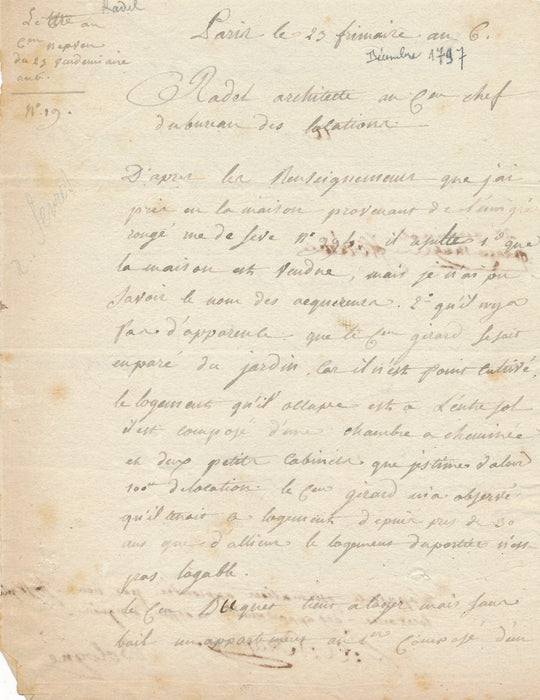 Radel
Lettre au
Cen
du 23 Vendemiaire
N° 19.
Paris le 23 frimaire an 6.
Décembre 1797
Radel architecte au Cen chef
du bureau des locations
D'apres les Renseignements que j'ai
pris en la maison provenant de l'émigré
rougé rue de seve N° il résulte 1° que
la maison est vendue, mais je n'ai pu
savoir le nom des acquereurs. 2° qu'il n'y a
pas d'apparence que le Cen girard se soit
emparé du jardin, Car il n'est point cultivé,
le logement qu'il occupe est a L'entresol
il est composé d'une chambre a cheminée
et deux petits Cabinets que j'estime valoir
100 de location. le Cen girard m'a observé
qu'il tenait ce logement depuis pres de 30
ans que d'allieurs le logement du portier n'est
pas logable.
le Cen Duquet tient a loyer mais sans
bail un appartement au 1er Composé d'un